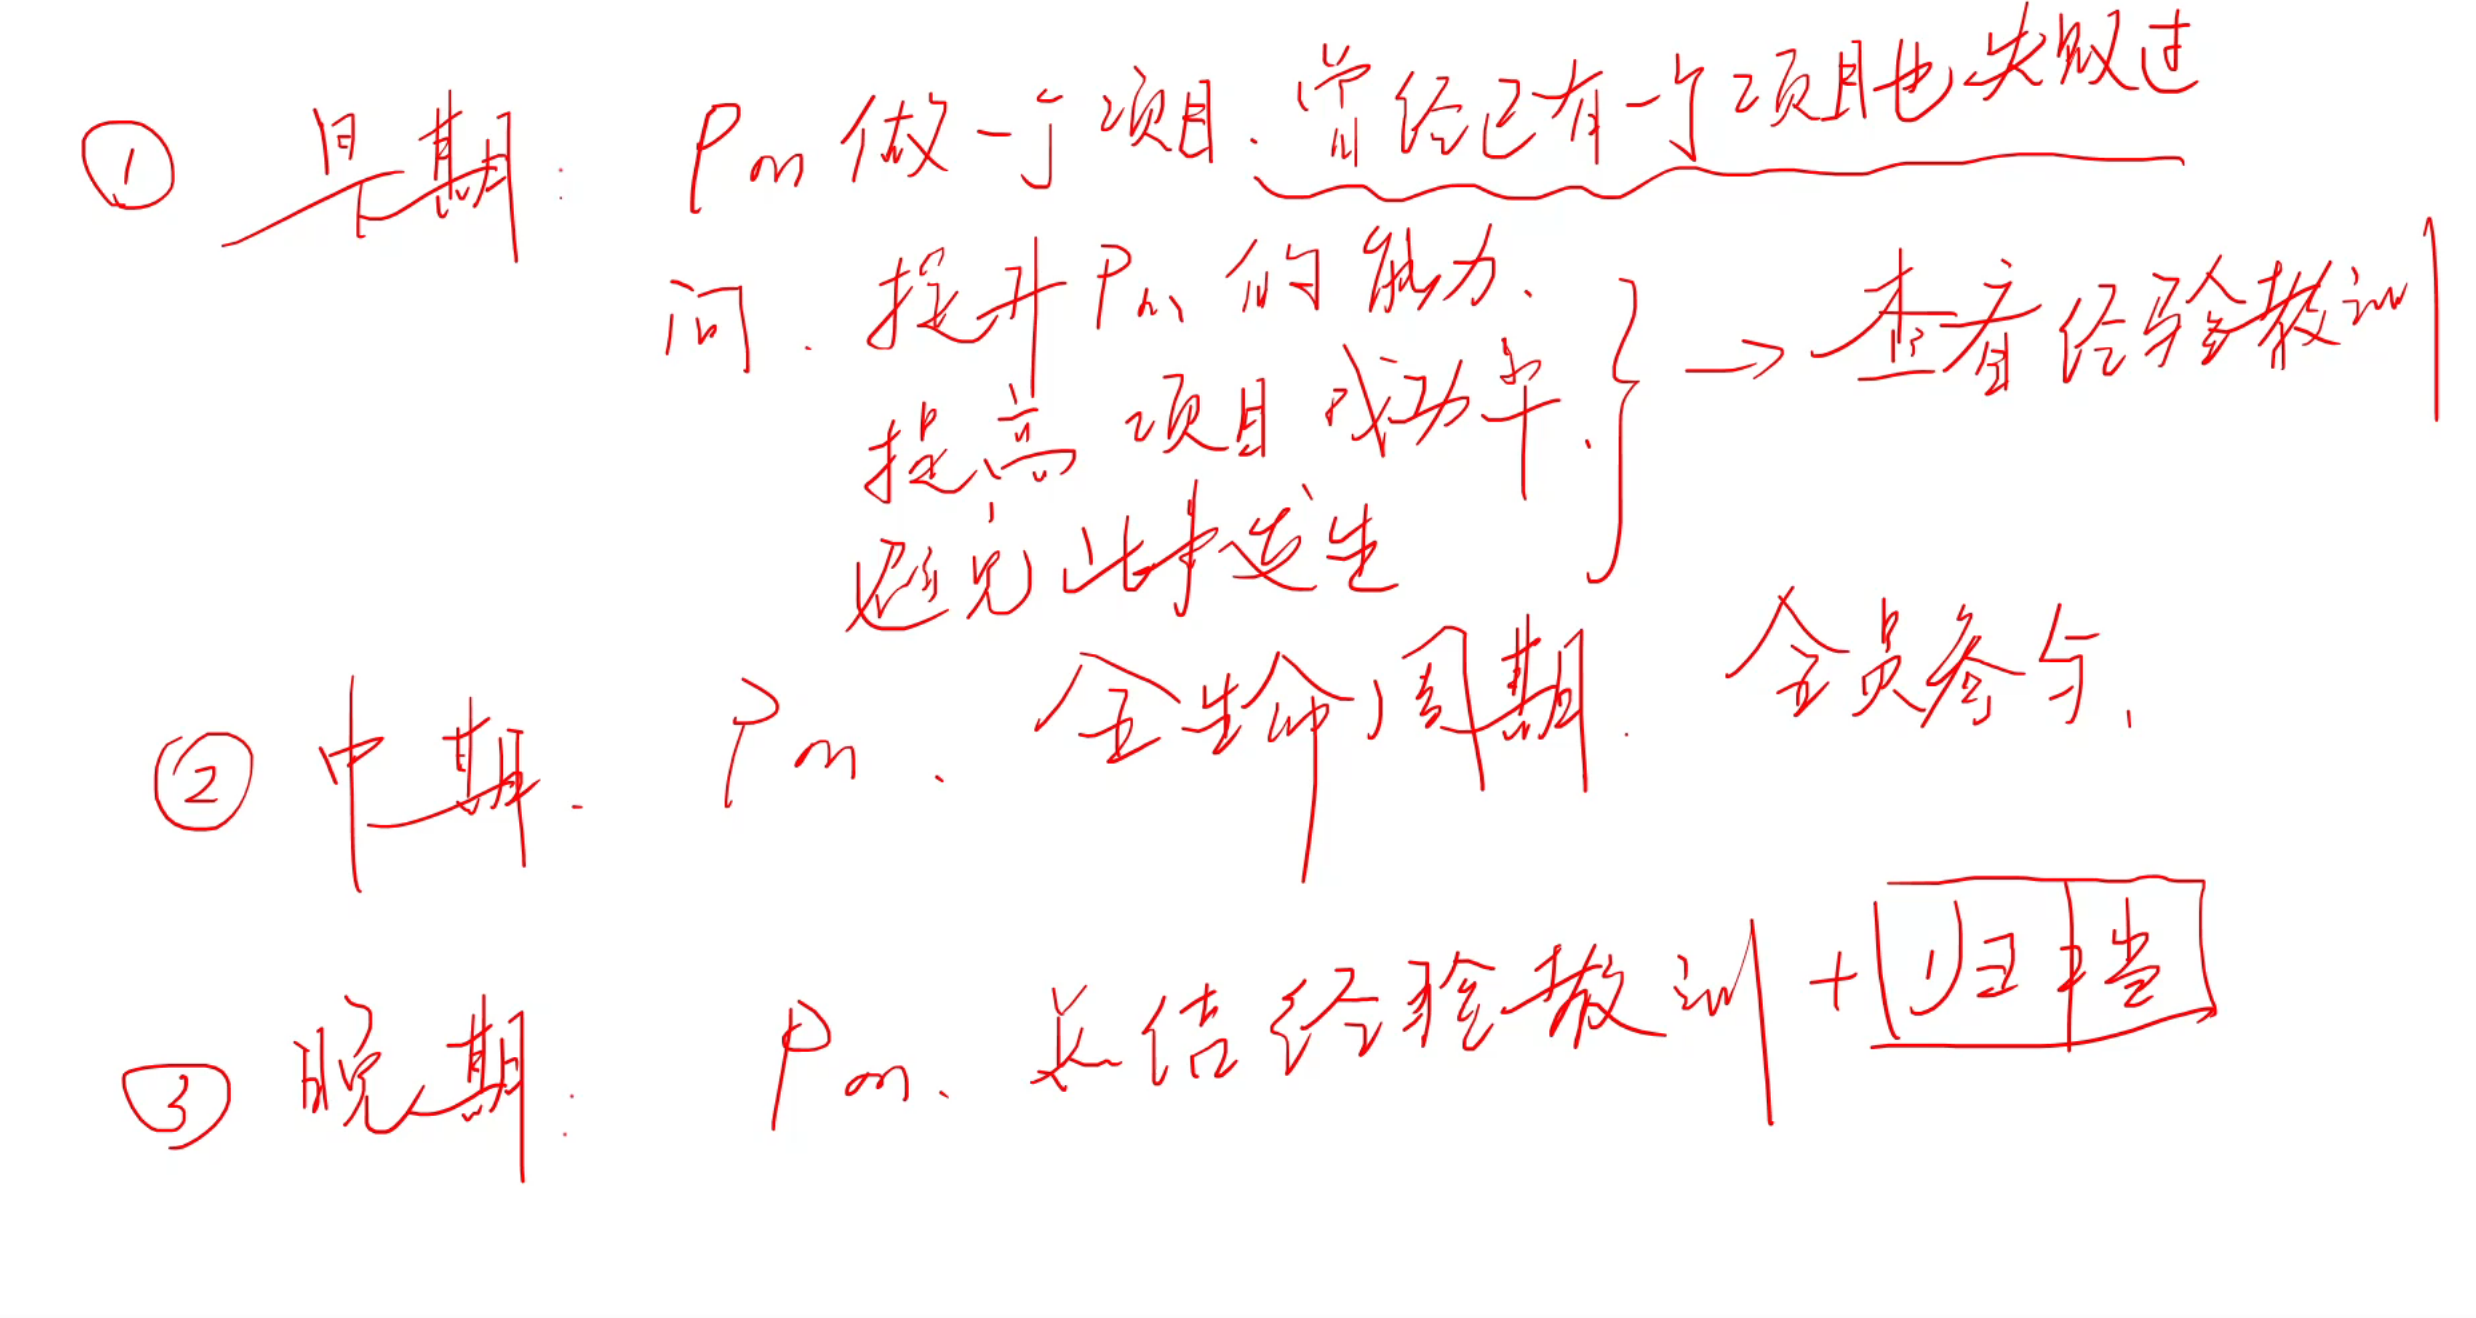 ① 早期: Pm 做一个项目. 曾经已有一个项目也失败过
问. 提升Pm的能力.
提高 项目 成功率. → 查看经验教训
避免此事发生
② 中期. Pm. 全生命周期. 全员参与.
③ 晚期: Pm. 总结经验教训 + 归档